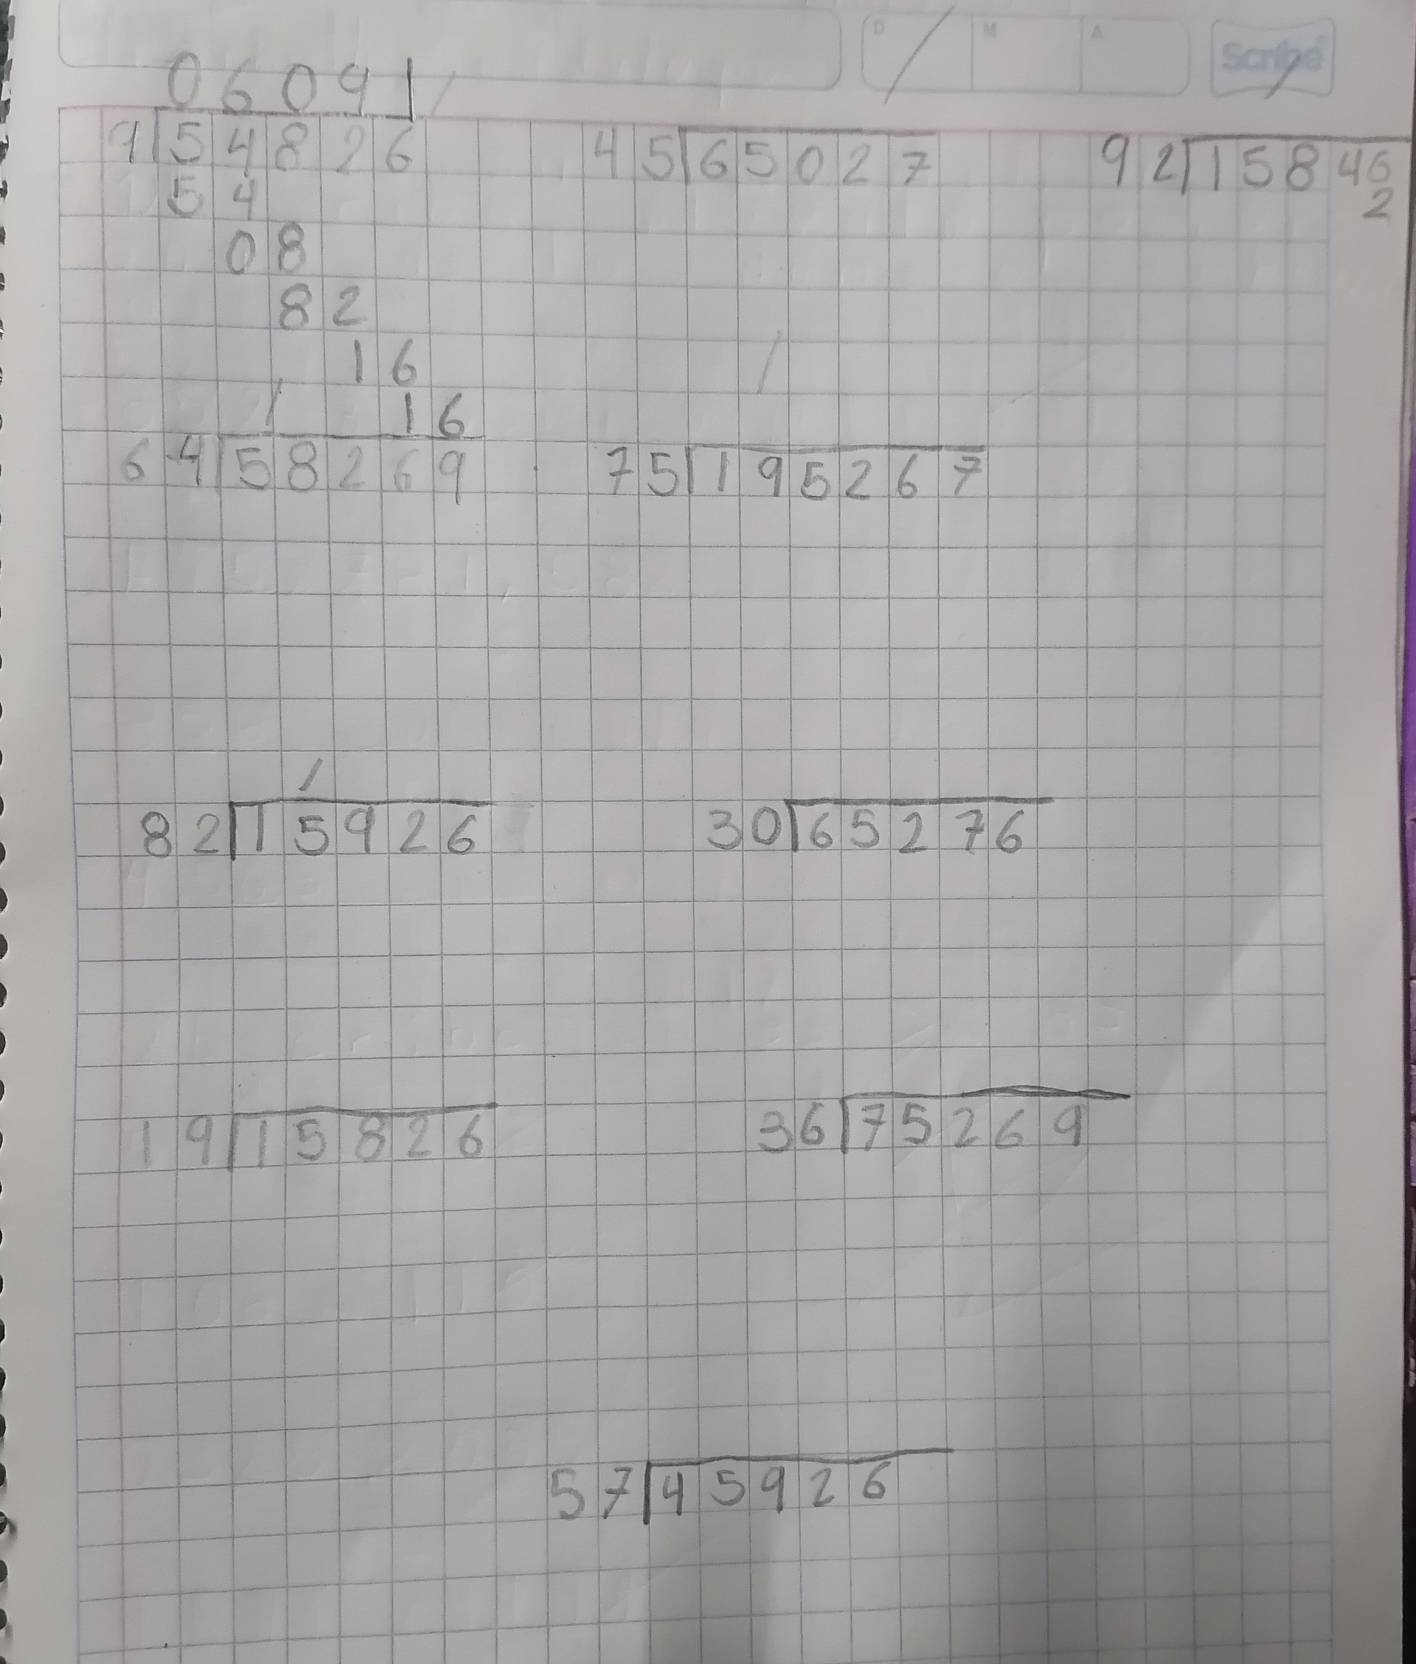 D M A Scribe
06091
9 54826 45 65027 92 15846
54 2
08
82
16
16
64 58269 75 195267
82 15926 30 65276
19 15826 36 75269
57 45926